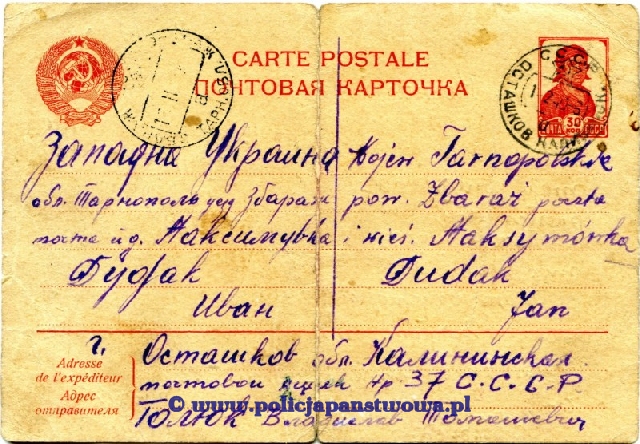 CARTE POSTALE
ПОЧТОВАЯ КАРТОЧКА
С.С.С.Р.
ОСТАШКОВ КАЛИН
ПОЧТА 30 КОП СССР
Западна Украина
обл. Тарнополь уезд Збараж
почта и д. Максимувка
Дудак
Иван
Wojew Tarnopolskie
pow. Zbaraż poczta
i wieś. Maksymówka
Dudak
Jan
г. Осташков обл. Калининская
почтовой ящик Нр 37 С.С.С.Р.
Голюк Владислав Томашевич
Adresse
de l'expéditeur
Адрес
отправителя
© www.policjapanstwowa.pl